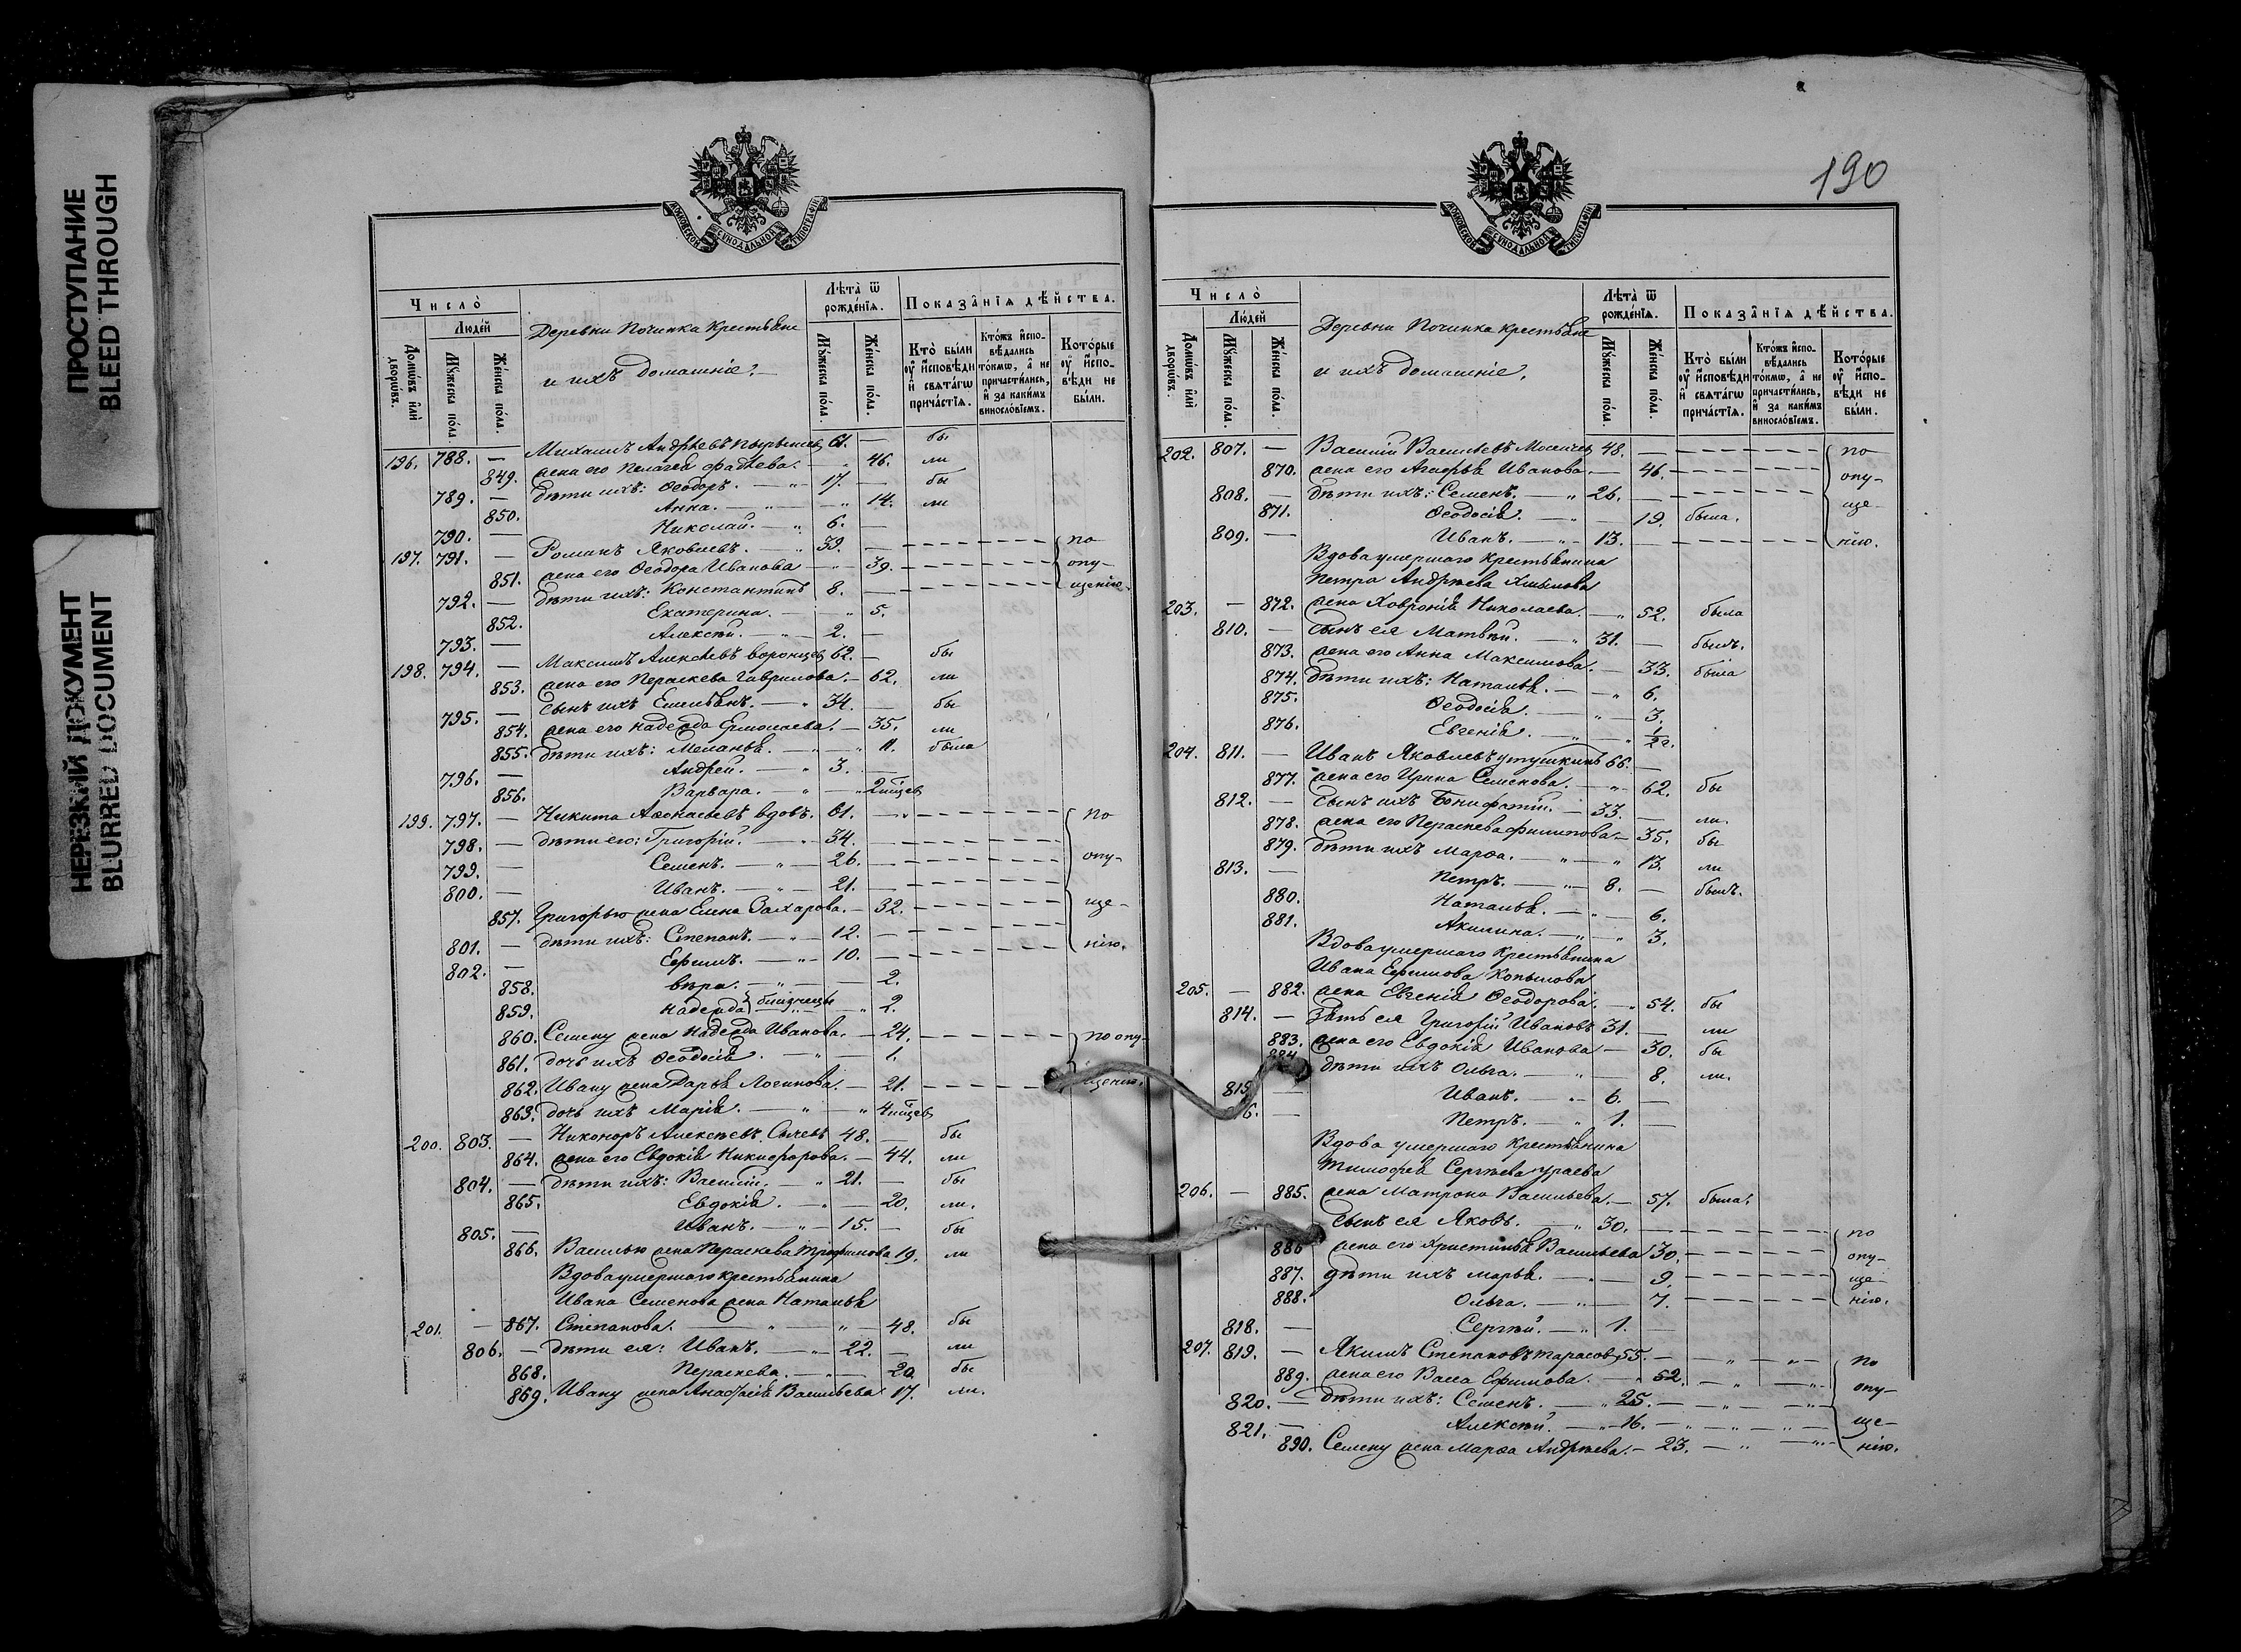 ПРОСТУПАНИЕ
BLEED THROUGH
НЕРЕЗКИЙ ДОКУМЕНТ
BLURRED DOCUMENT
МОСКОВСКОЙ СѴНОДАЛЬНОЙ ТИПОГРАФІИ
Число̀
Людей
Домѡвъ и҆лѝ дворѡвъ.
Мꙋжеска пола.
Женска пола.
Деревни Починка Крестьяне
и ихъ домашніе:
Лѣта̀ ѿ рожденїѧ.
Мꙋжеска пола.
Женска пола.
Показанїѧ дѣйства.
Кто̀ были ᲂу҆ и҆сповѣди и҆ свѧтагѡ причастїѧ.
Ктожъ и҆сповѣдались токмѡ, а҆ не причастились, и҆ за какимъ винословїемъ.
Которые ᲂу҆ и҆сповѣди не были.
196. 788. — Михаилъ Андрѣевъ 61. — бы
849. жена его Пелагея Фадѣева. — 46. ли
789. — дѣти ихъ: Ѳеодоръ. — 17. — бы
850. Анна. — 14. ли
790. — Николай. — 6. —
197. 791. — Романъ Яковлевъ. — 39. — по
851. жена его Ѳеодора Иванова — 39. опу-
792. — дѣти ихъ: Константинъ 8. — щенію.
852. Екатерина. — 5.
793. — Алексѣй. — 2. —
198. 794. — Максимъ Алексѣевъ Воронцевъ 62. — бы
853. жена его Пераскева Гаврилова. — 62. ли
795. — сынъ ихъ Емельянъ. — 34. — бы
854. жена его Надежда Ермолаева. — 35. ли
855. дѣти ихъ: Меланья. — 11. была
796. — Андрей. — 3. —
856. Варвара. — 2 мѣсяц
199. 797. — Никита Аѳонасьевъ вдовъ. 61. — по
798. — дѣти его: Григорій. — 34. —
799. — Семенъ. — 26. — опу-
800. — Иванъ. — 21. —
857. Григорью жена Елена Захарова. — 32. ще-
801. — дѣти ихъ: Степанъ. — 12. —
802. — Ефимъ. — 10. — нію.
858. Вѣра. — 2.
859. Надежда близнецы 2.
860. Семену жена Надежда Иванова. — 24. по опу-
861. дочь ихъ Ѳеодосія. — 1.
862. Ивану жена Дарья Логинова. — 21. щенію.
863. дочь ихъ Марія. — 4 мѣсяц
200. 803. — Никоноръ Алексѣевъ Сычевъ 48. — бы
864. жена его Евдокія Никифорова. — 44. ли
804. — дѣти ихъ: Василій. — 21. — бы
865. Евдокія. — 20. ли.
805. — Иванъ. — 15. — бы
866. Василью жена Пераскева Трофимова 19. ли
Вдова умершаго крестьянина
Ивана Семенова жена Наталья
201. — 867. Степанова. — 48. бы
806. — дѣти ея: Иванъ. — 22. — ли
868. Пераскева. — 20. бы
869. Ивану жена Анастасія Васильева 17. ли.
190
МОСКОВСКОЙ СѴНОДАЛЬНОЙ ТИПОГРАФІИ
Число̀
Людей
Домѡвъ и҆лѝ дворѡвъ.
Мꙋжеска пола.
Женска пола.
Деревни Починка Крестьяне
и ихъ домашніе.
Лѣта̀ ѿ рожденїѧ.
Мꙋжеска пола.
Женска пола.
Показанїѧ дѣйства.
Кто̀ были ᲂу҆ и҆сповѣди и҆ свѧтагѡ причастїѧ.
Ктожъ и҆сповѣдались токмѡ, а҆ не причастились, и҆ за какимъ винословїемъ.
Которые ᲂу҆ и҆сповѣди не были.
202. 807. — Василій Васильевъ 48. — по
870. жена его Агафья Иванова. — 46. опу-
808. — дѣти ихъ: Семенъ. — 26. —
871. Ѳеодосія. — 19. была. ще-
809. — Иванъ. — 13. — нію.
Вдова умершаго крестьянина
Петра Андрѣева
203. — 872. жена Ховронія Николаева. — 52. была
810. — сынъ ея Матвѣй. — 31. — былъ.
873. жена его Анна Максимова. — 33. была
874. дѣти ихъ: Наталья. — 6.
875. Ѳеодосія. — 3.
876. Евгенія. — 1/2 г.
204. 811. — Иванъ Яковлевъ Утушкинъ 66. —
877. жена его Ирина Семенова. — 62. бы
812. — сынъ ихъ Бонифатій. — 33. — ли.
878. жена его Пераскева Филипова. — 35. бы
879. дѣти ихъ Марѳа. — 13. ли
813. — Петръ. — 8. — былъ.
880. Наталья. — 6.
881. Акилина. — 3.
Вдова умершаго крестьянина
Ивана Ефимова Копылова
205. — 882. жена Евгенія Ѳеодорова. — 54. бы
814. — Зять ея Григорій Ивановъ 31. — ли
883. жена его Евдокія Иванова — 30. бы
884. дѣти ихъ Ольга. — 8. ли.
815. — Иванъ. — 6. —
6. — Петръ. — 1. —
Вдова умершаго крестьянина
Тимофея Сергѣева Ураева
206. — 885. жена Матрона Васильева. — 57. была.
сынъ ея Яковъ. — 30. — по
886 жена его Христинья Васильева 30. опу-
887. дѣти ихъ Марья. — 9. ще-
888. Ольга. — 7. нію.
818. — Сергѣй. — 1. —
207. 819. — Якимъ Степановъ Тарасовъ 55. — по
889. жена его Васса Ефимова. — 52. опу-
820. — дѣти ихъ: Семенъ. — 25. —
821. — Алексѣй. — 16. — ще-
890. Семену жена Марѳа Андрѣева. — 23. — нію.